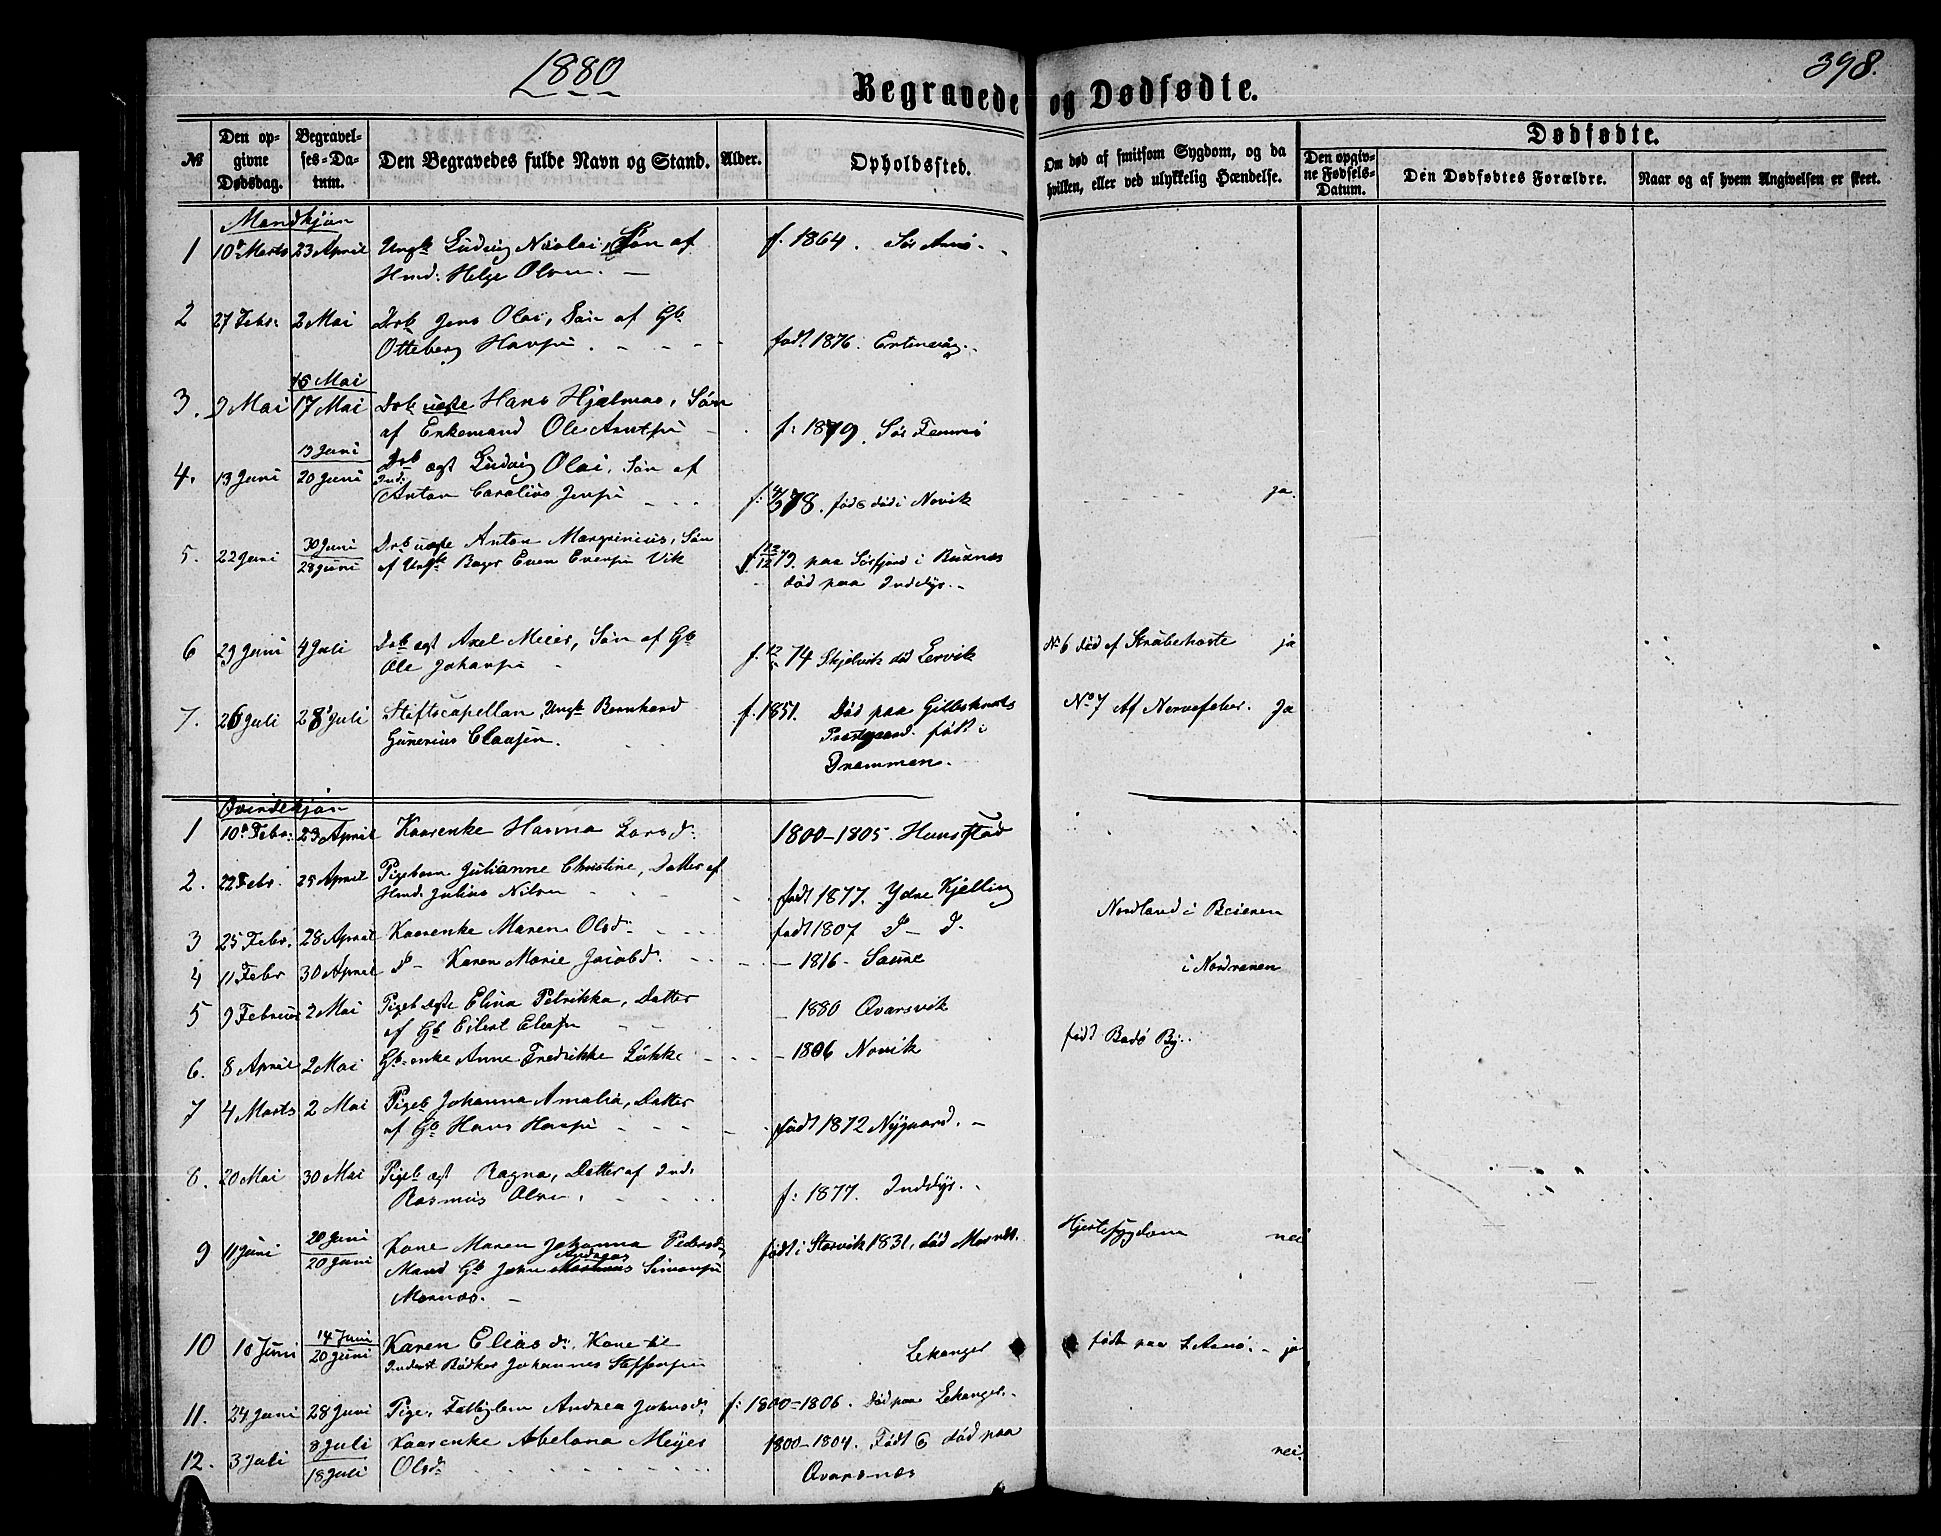 1880
398.
Begravede og Dødfødte.
№
Den opgivne Dødsdag.
Begravelses-Datum.
Den Begravedes fulde Navn og Stand.
Alder.
Opholdssted.
Om død af smitsom Sygdom, og da hvilken, eller ved ulykkelig Hændelse.
Dødfødte.
Den opgivne Fødsels-Datum.
Den Dødfødtes Forældre.
Naar og af hvem Angivelsen er skeet.
Mandkjøn
1 10de Marts 23 April Ungk Ludvig Nicolai, Søn af f. 1864. Sør Arnø.
Hmd: Helge Olsen.
2 27 Febr: 2 Mai Drb Jens Olai, Søn af Gb
Otteberg Hansen født 1876.
15 Mai
3. 9 Mai 17 Mai Drb uægte Hans Hjelmar, Søn
af Enkemand Ole Arntsen f: 1879. Sør
13 Juni
4. 13 Juni 20 Juni Drb ægt Ludvig Olai, Søn af
Ind: Anton Carolius Jensen f: 78. død i Novik ja.
30 Juni
5. 22 Juni 28 Juni Drb uægte Anton Margrinius, Søn
af Ungk Bager Even Evensen Vik f 13/12 79. paa Sørfjord i Buxnæs
død paa Inddyr.
6 29 Juni 4 Juli Drb ægt Axel Meier, Søn af Gb
Ole Johansen f. 74 Skjelvik død Lervik No 6 død af Strubehoste ja
7. 26 Juli 28 Juli Stiftscapellan, Ungk Bernhard f. 1851. Død paa Gilleskaals No 7 Af Nervefeber. Ja
Gunerius Claussen. Præstgaard. født i
Drammen.
Qvindekjøn
1 10de Febr: 23 April Kaarenke Hanna Larsd: 1800-1805. Hunstad
2. 22 Febr. 25 April Pigebarn Julianne Christine, Datter af
Hmd. Julius Nilsen født 1877. Ydre Kjelling
3 25 Febr. 28 April Kaarenke Maren Olsd: født 1807 D - D. Nordland i Beieren
4 11 Febr 30 April D - Karen Marie Jacobd: - 1816 - Saune i Nordranen
5 9 Februar 2 Mai Pigeb ægte Elina Petrikka, Datter
af Gb Eilert - 1880 Qvarsvik
6. 8 April 2 Mai Gb-enke Anne Fredrikke Lükke - 1806 Novik født Bodø By.
7 4 Marts 2 Mai Pigeb Johanna Amalia, Datter
af Gb Hans Hansen født 1872 Nygaard.
8. 20 Mai 30 Mai Pigeb ægt Ragna, Datter af Ind:
Rasmus Olsen. f: 1877. Inddyr.
20 Juni
9 11 Juni 20 Juni Kone Maren Johanna Pedersd, født i Storvik 1831, død Mornæs. Hjertesygdom nei
Mand Gb John Andreas Simonsen
Mornæs.
14 Juni
10 10 Juni 20 Juni Karen Eliasd:, Kone til Lekanger født paa S. Arnø. ja
Inderst Bødker Johannes Steffensen
11. 24 Juni 28 Juni Pige, Fattiglem Andrea Johnsd: f: 1800-1806. Død paa Lekanger.
8 Juli
12. 3 Juli 18 Juli Kaarenke Abelona Meyer 1800-1804. Født & død paa nei.
Olsd: Qvarsnæs